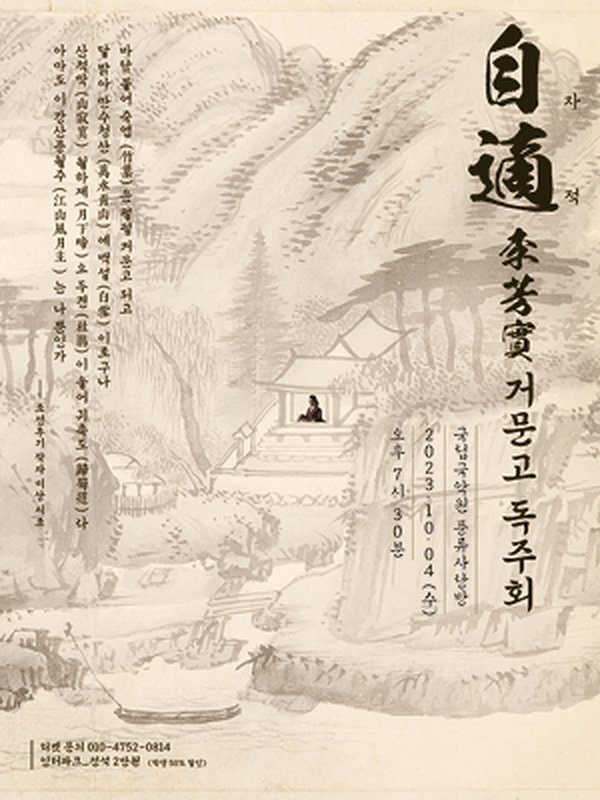 自適
자적
李芳實 거문고 독주회
국립국악원 풍류사랑방
2023. 10. 04 (수)
오후 7시 30분
바람 불어 죽엽(竹葉)은 렁렁 거문고 되고
달 밝아 만수청산(萬水靑山)에 백설(白雪)이로구나
산적막(山寂寞) 월하제(月下啼)요 두견(杜鵑)이 울어 귀촉도(歸蜀道)라
아마도 이 강산풍월주(江山風月主)는 나 뿐인가
조선후기 작자 미상 시조
티켓 문의 010-4752-0814
인터파크_전석 2만원 (학생 50% 할인)